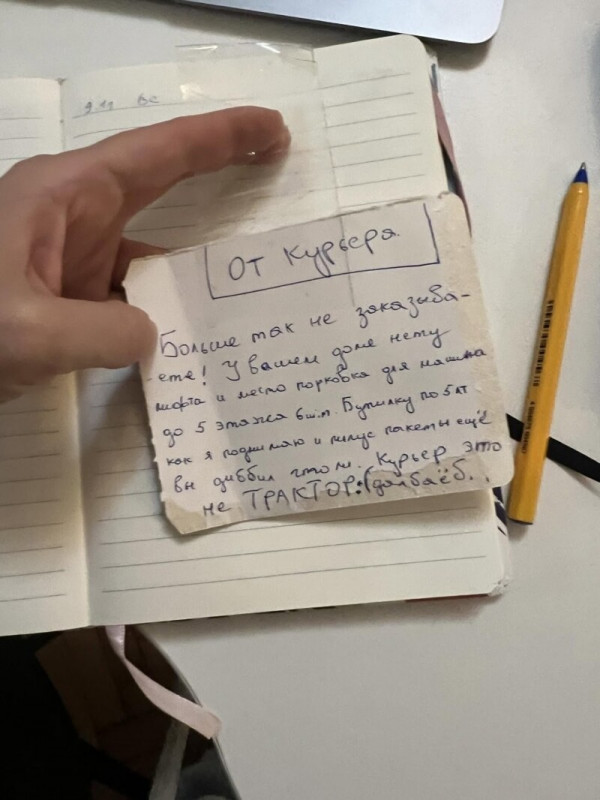 9.11 Вс
ОТ Курьера
Больше так не заказыва-
-ете! У вашем доме нету
лифта и место порковка для машина
до 5 этажа 6 шт. Бутилку по 5 лт
как я поднимаю и плюс пакеты ещё
вы диббил что ли. Курьер это
не ТРАКТОР:(долбаёб..